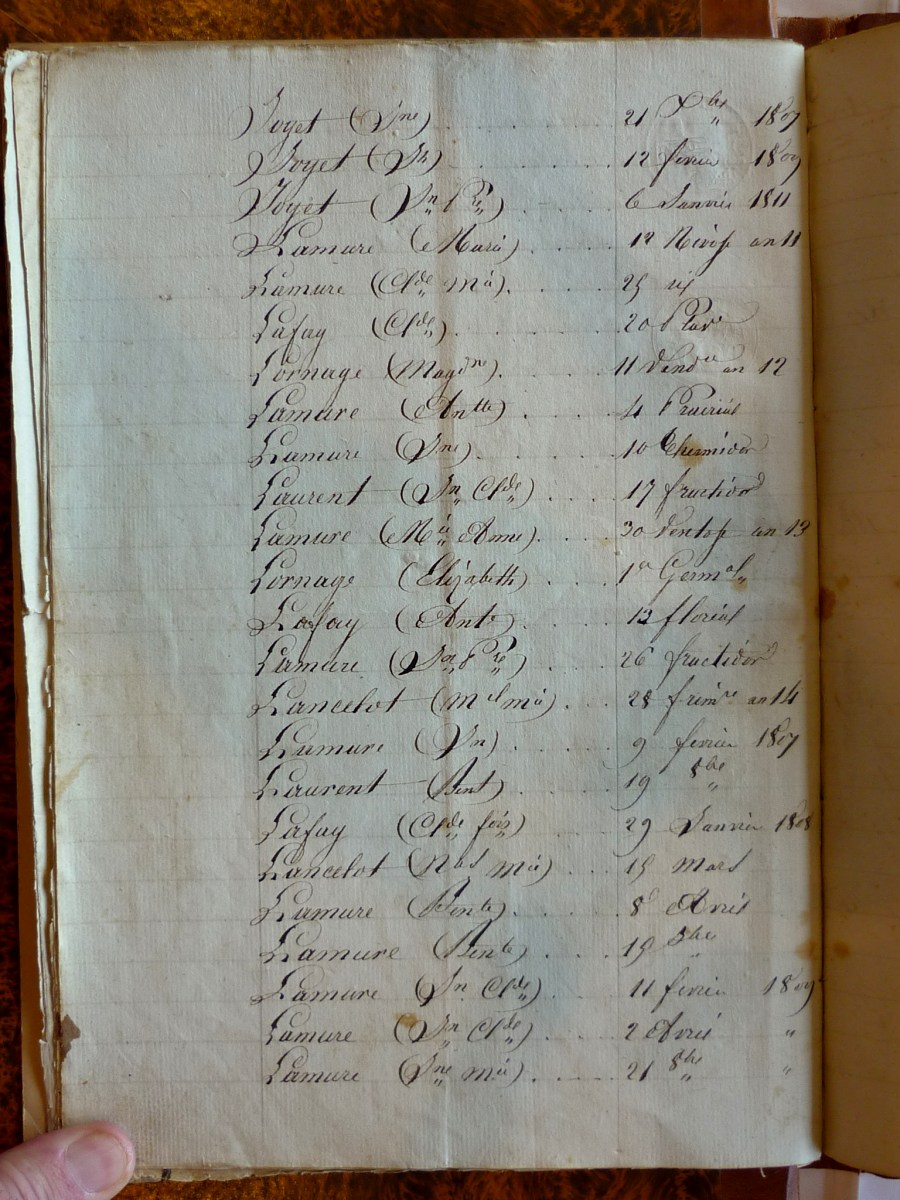 Joyet (Jne) . . . . 21 Xbre 1807
Joyet (Jn) . . . . 12 fevrier 1809
Joyet (Jn Pre) . . . . 6 Janvier 1811
Lamure (Marie) . . . . 12 Nivose an 11
Lamure (Clde Mie) . . . . 25
Lafay (Clde) . . . . 20
Lornage (Magdne) . . . . 11 Vendre an 12
Lamure (Antte) . . . . 4 Prairial
Lamure (Jne) . . . . 10 thermidor
Laurent (Jn Clde) . . . . 17 fructidor
Lamure (Mie Anne) . . . . 30 Ventose an 13
Lornage (Elizabeth) . . . 1er Germal
Lafay (Ante) . . . . 13 florial
Lamure (Jn Pre) . . . . 26 fructidor
Lancelot (Mel Mie) . . . 28 frimre an 14
Lamure (Jn) . . . . 9 fevrier 1807
Laurent (Bent) . . . . 19 8bre "
Lafay (Clde fois) . . . 29 Janvier 1808
Lancelot (Nas Mie) . . . 15 Mars
Lamure (Bente) . . . . 8 Avril
Lamure (Bente) . . . . 19
Lamure (Jn Clde) . . . . 11 fevrier 1809
Lamure (Jn Clde) . . . . 2 Avril "
Lamure (Jne Mie) . . . . 21 8bre "